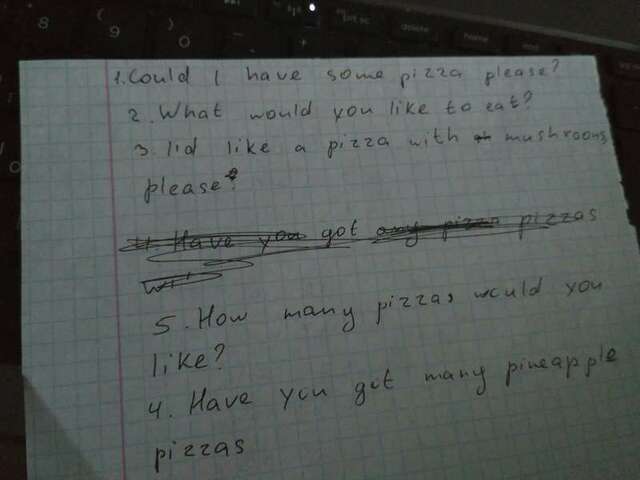 8
9
0
prt sc
delete
home
end
1. Could I have some pizza please?
2. What would you like to eat?
3. I'd like a pizza with mushrooms
please?
4 Have you got any pizza pizzas
wi
5. How many pizzas would you
like?
4. Have you got many pineapple
pizzas